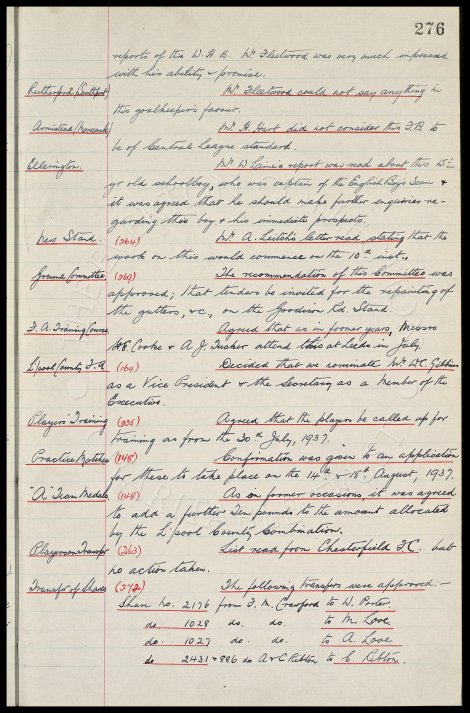 276
reports of this W.H.B. Mr Fleetwood was very much impressed
with his ability & promise.
Rutherford (Southport) Mr Fleetwood could not say anything in
this goalkeeper's favour.
Armistead (Morecambe) Mr H. Hart did not consider this F.B. to
be of Central League standard.
Ellerington. Mr W Laine's report was read about this
yr old schoolboy, who was captain of the English Boys Team &
it was agreed that he should make further enquiries re-
garding this boy & his immediate prospects.
New Stand. (264) Mr. A. Leitch's letter read stating that the
work on this would commence on the 10th inst.,
Ground Committee (269) The recommendation of this Committee was
approved; that tenders be invited for the repainting of
the gutters, &c., on the Goodison Rd. Stand.
F.A. Training Course Agreed that as in former years, Messrs
H.E. Cooke & A.J. Tucker attend this at Leeds in July
L'pool County F.A. (164) Decided that we nominate Mr W.C. Gibbins
as a Vice President & the Secretary as a member of the
Executive.
Players' Training (235) Agreed that the players be called up for
training as from the 20th July, 1937.
Practice Matches (148) Confirmation was given to an application
for these to take place on the 14th & 18th August, 1937.
"A" Team Medals (148) As on former occasions it was agreed
to add a further Ten pounds to the amount allocated
by the L'pool County Combination.
Players on Transfer (263) List read from Chesterfield F.C. but
no action taken.
Transfer of Shares (272) The following transfers were approved:-
Share No. 2176 from F.M. Crawford to W. Porter.
do. 1028 do. do. to M. Love.
do. 1027 do. do. to A. Love
do 2431 & 886 do A & C Ribton to C. Ribton.